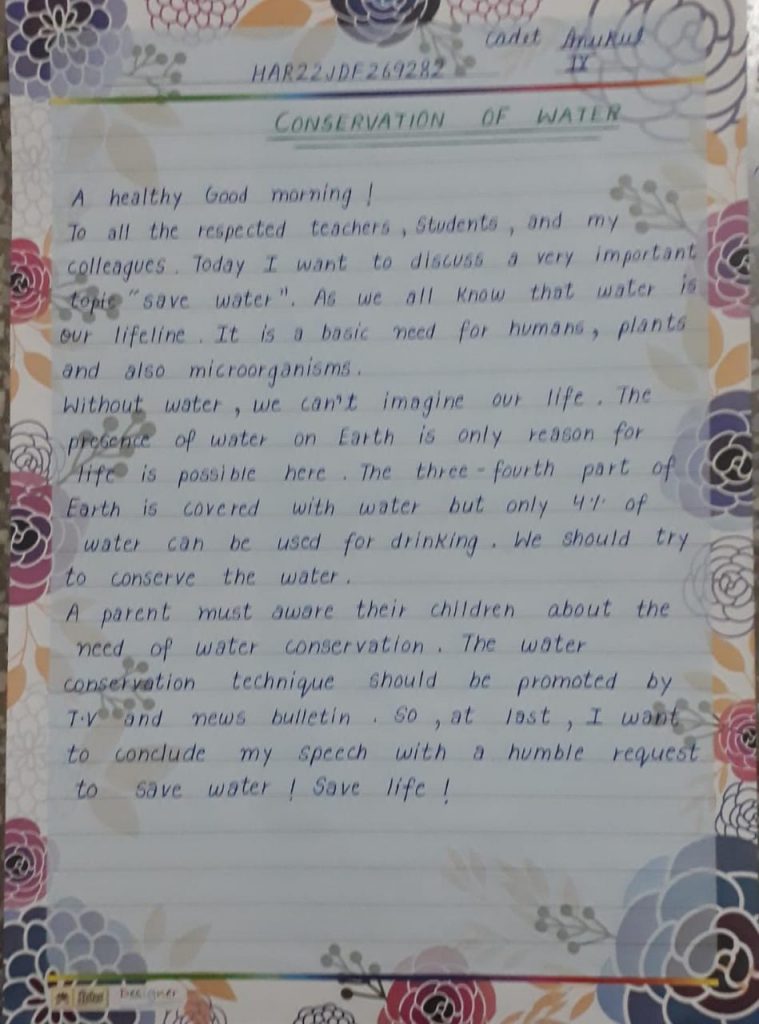 Cadet Anukul
HAR22JDF269282 IX
CONSERVATION OF WATER
A healthy Good morning !
To all the respected teachers, Students, and my
colleagues. Today I want to discuss a very important
topic "save water". As we all know that water is
our lifeline. It is a basic need for humans, plants
and also microorganisms.
Without water, we can't imagine our life. The
presence of water on Earth is only reason for
life is possible here. The three-fourth part of
Earth is covered with water but only 4% of
water can be used for drinking. We should try
to conserve the water.
A parent must aware their children about the
need of water conservation. The water
conservation technique should be promoted by
T.V and news bulletin. So, at last, I want
to conclude my speech with a humble request
to save water ! Save life !
Designer